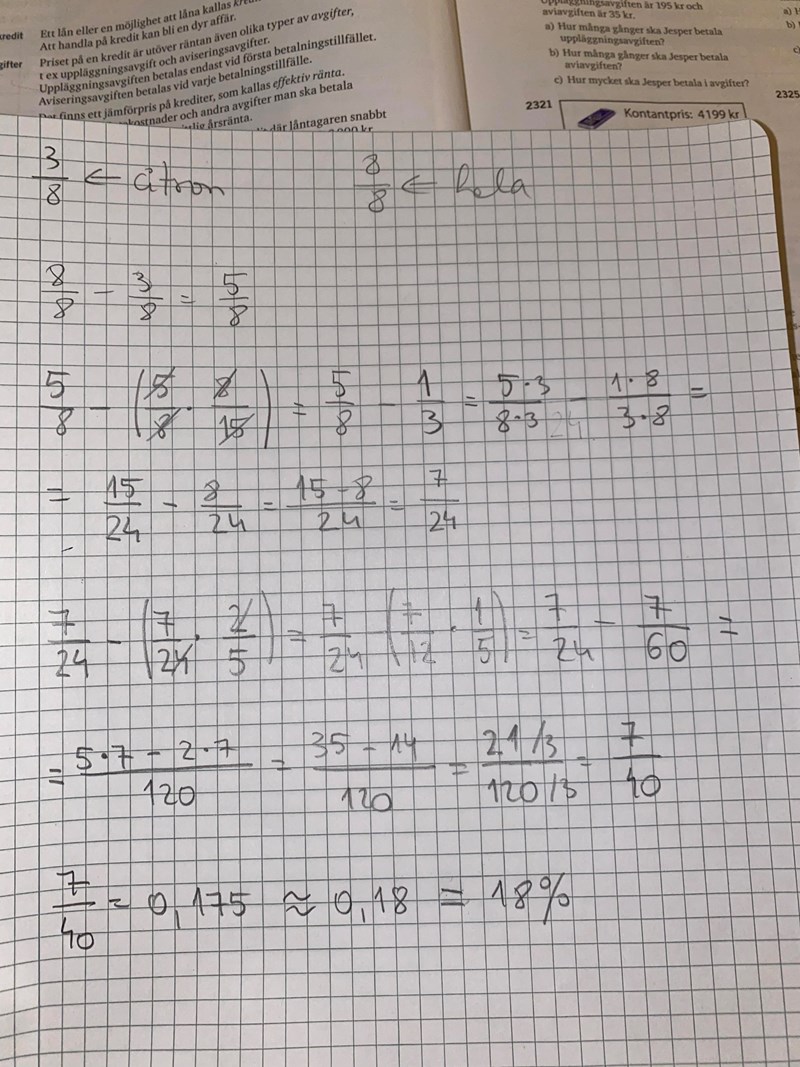 Ett lån eller en möjlighet att låna kallas
Att handla på kredit kan bli en dyr affär.
Priset på en kredit är utöver räntan även olika typer av avgifter,
t ex uppläggningsavgift och aviseringsavgifter.
Uppläggningsavgiften betalas endast vid första betalningstillfället.
Aviseringsavgiften betalas vid varje betalningstillfälle.
finns ett jämförpris på krediter, som kallas effektiv ränta.
och andra avgifter man ska betala
årsränta.
där låntagaren snabbt
kr
är 195 kr och
aviavgiften är 35 kr.
a) Hur många gånger ska Jesper betala
uppläggningsavgiften?
b) Hur många gånger ska Jesper betala
aviavgiften?
c) Hur mycket ska Jesper betala i avgifter?
2321
Kontantpris: 4199 kr
2325
3/8 ← citron 8/8 ← hela
8/8 - 3/8 = 5/8
5/8 - (5/8 · 8/15) = 5/8 - 1/3 = 5·3/8·3 - 1·8/3·8 =
= 15/24 - 8/24 = 15-8/24 = 7/24
7/24 - (7/24 · 2/5) = 7/24 - (7/12 · 1/5) = 7/24 - 7/60 =
= 5·7 - 2·7/120 = 35 - 14/120 = 21/3/120/3 = 7/40
7/40 = 0,175 ≈ 0,18 = 18%